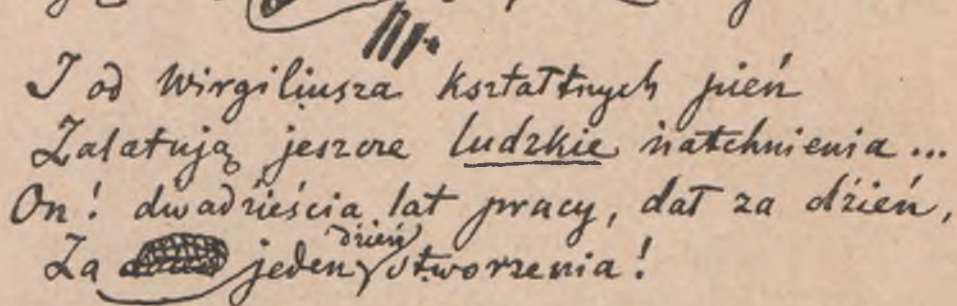 III.
I od Wirgiliusza kształtnych pień
Zalatują jeszcze ludzkie natchnienia...
On! dwadzieścia lat pracy, dał za dzień,
Za jeden dzień stworzenia!